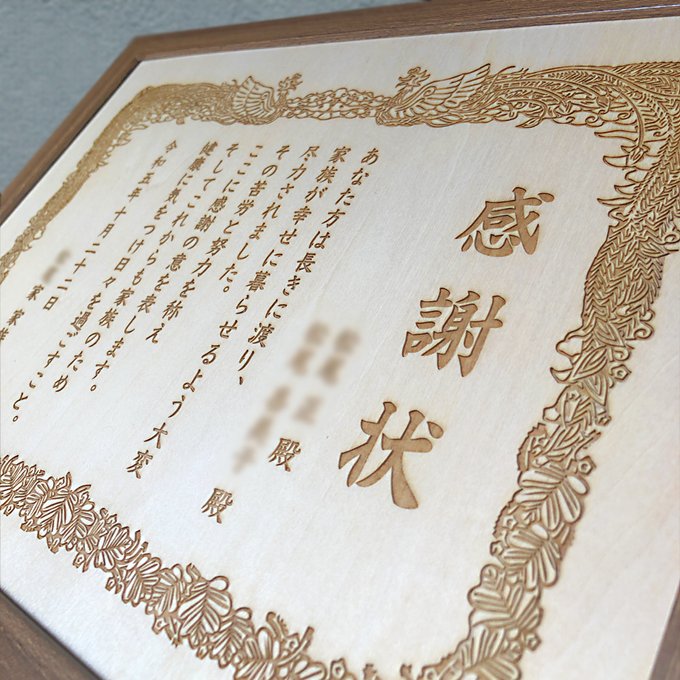 感謝状
殿
殿
あなた方は長きに渡り、
家族が幸せに暮らせるよう大変
尽力されました。
その苦労と努力を称え
ここに感謝の意を表します。
そしてこれからも家族のため
健康に気をつけ日々を過ごすこと。
令和五年十月二十二日
家家